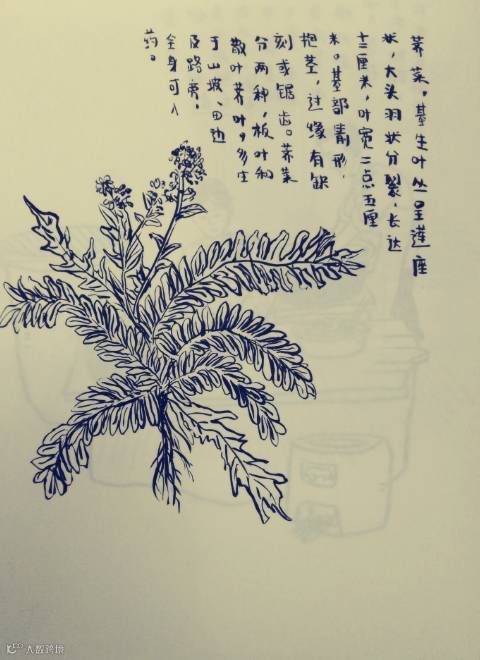 荠菜。基生叶丛呈莲座
状，大头羽状分裂，长达
十二厘米，叶宽二点五厘
米。基部箭形，
抱茎，边缘有缺
刻或锯齿。荠菜
分两种，板叶和
散叶荠叶，多生
于山坡、田边
及路旁，
全身可入
药。
大数跨境